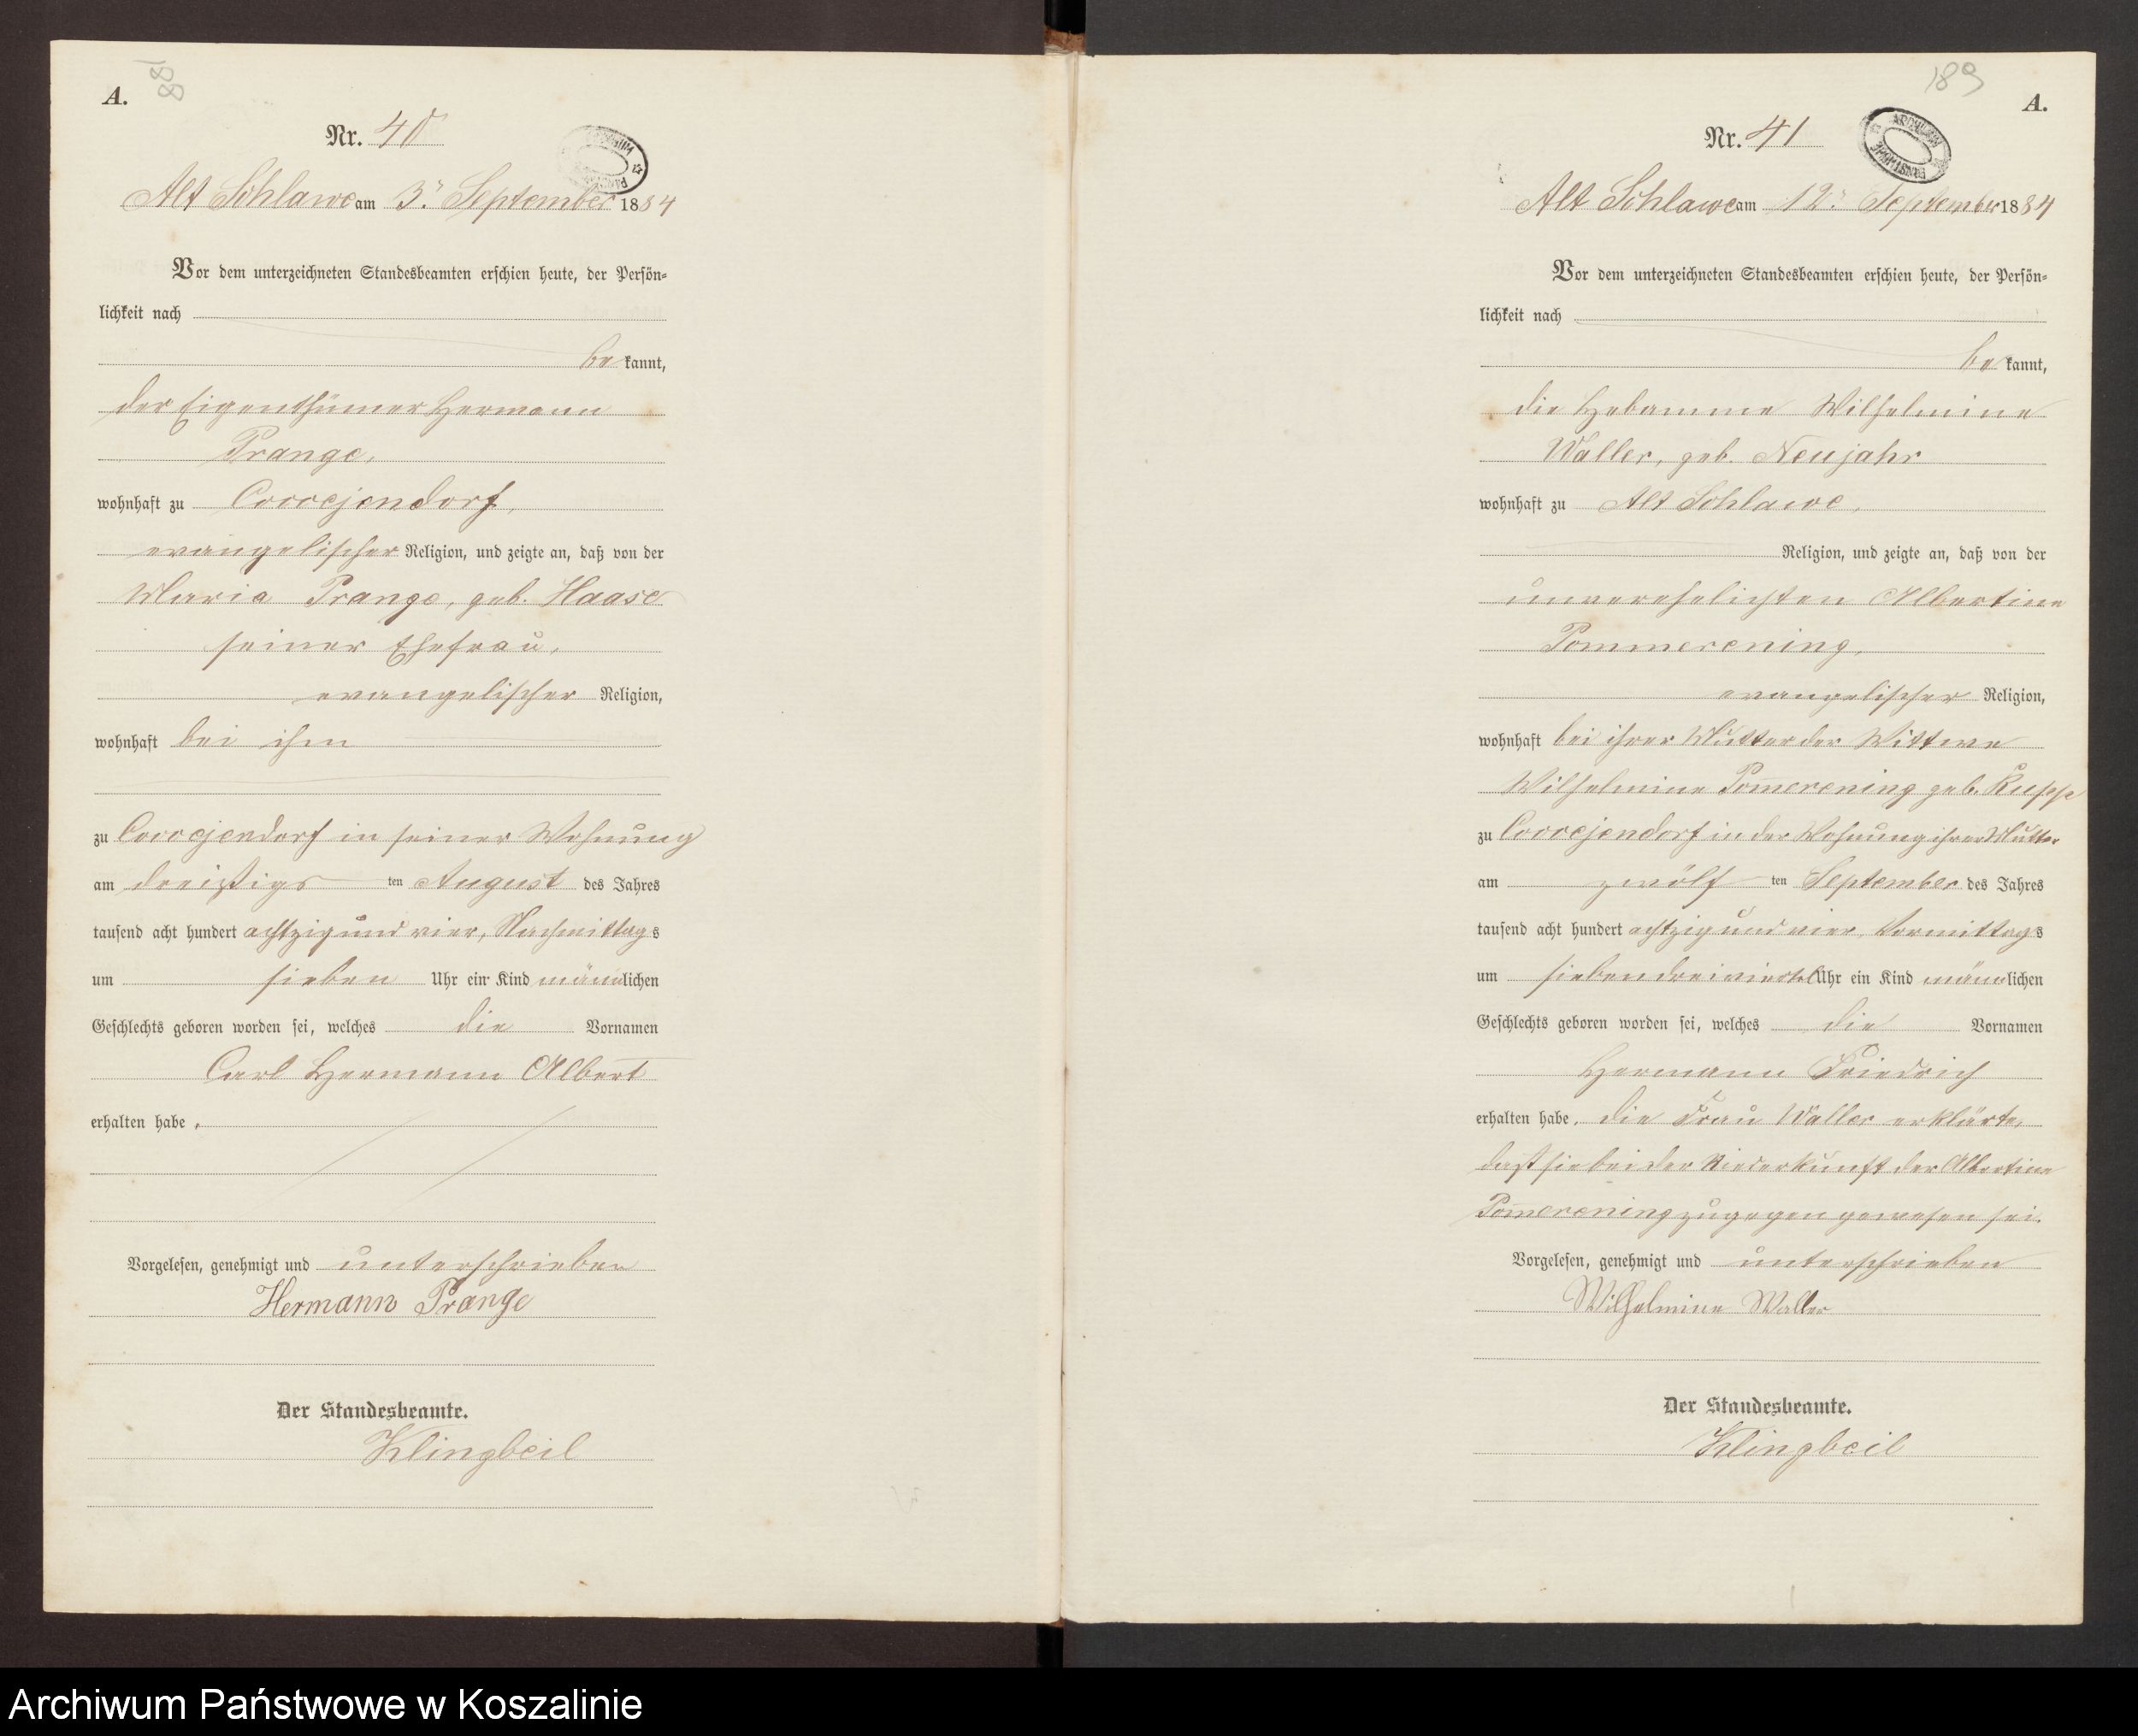 A.
188
Nr. 40
Alt Schlawe am 3ten September 1884
Vor dem unterzeichneten Standesbeamten erschien heute, der Persön-
lichkeit nach
be kannt,
der Eigenthümer Hermann
Prange,
wohnhaft zu Coccejendorf,
evangelischer Religion, und zeigte an, daß von der
Maria Prange, geb. Haase
seiner Ehefrau,
evangelischer Religion,
wohnhaft bei ihm
zu Coccejendorf in seiner Wohnung
am dreißigs ten August des Jahres
tausend acht hundert achtzig und vier, Nachmittags
um sieben Uhr ein Kind männlichen
Geschlechts geboren worden sei, welches die Vornamen
Carl Hermann Albert
erhalten habe.
Vorgelesen, genehmigt und unterschrieben
Hermann Prange
Der Standesbeamte.
Klingbeil
189
A.
Nr. 41
ARCHIWUM PAŃSTWOWE
Alt Schlawe am 12ten September 1884
Vor dem unterzeichneten Standesbeamten erschien heute, der Persön-
lichkeit nach
be kannt,
die Hebamme Wilhelmine
Waller, geb. Neujahr
wohnhaft zu Alt Schlawe,
Religion, und zeigte an, daß von der
unverehelichten Albertine
Pommerening,
evangelischer Religion,
wohnhaft bei ihrer Mutter der Wittwe
Wilhelmine Pom̅erening geb. Rupp
zu Coccejendorf in der Wohnung ihrer Mutter
am zwölf ten September des Jahres
tausend acht hundert achtzig und vier, Vormittags
um sieben dreiviertel Uhr ein Kind männlichen
Geschlechts geboren worden sei, welches die Vornamen
Hermann Friedrich
erhalten habe. die Frau Waller erklärte,
daß sie bei der Niederkunft der Albertine
Pom̅erening zugegen gewesen sei.
Vorgelesen, genehmigt und unterschrieben
Wilhelmine Waller
Der Standesbeamte.
Klingbeil
Archiwum Państwowe w Koszalinie